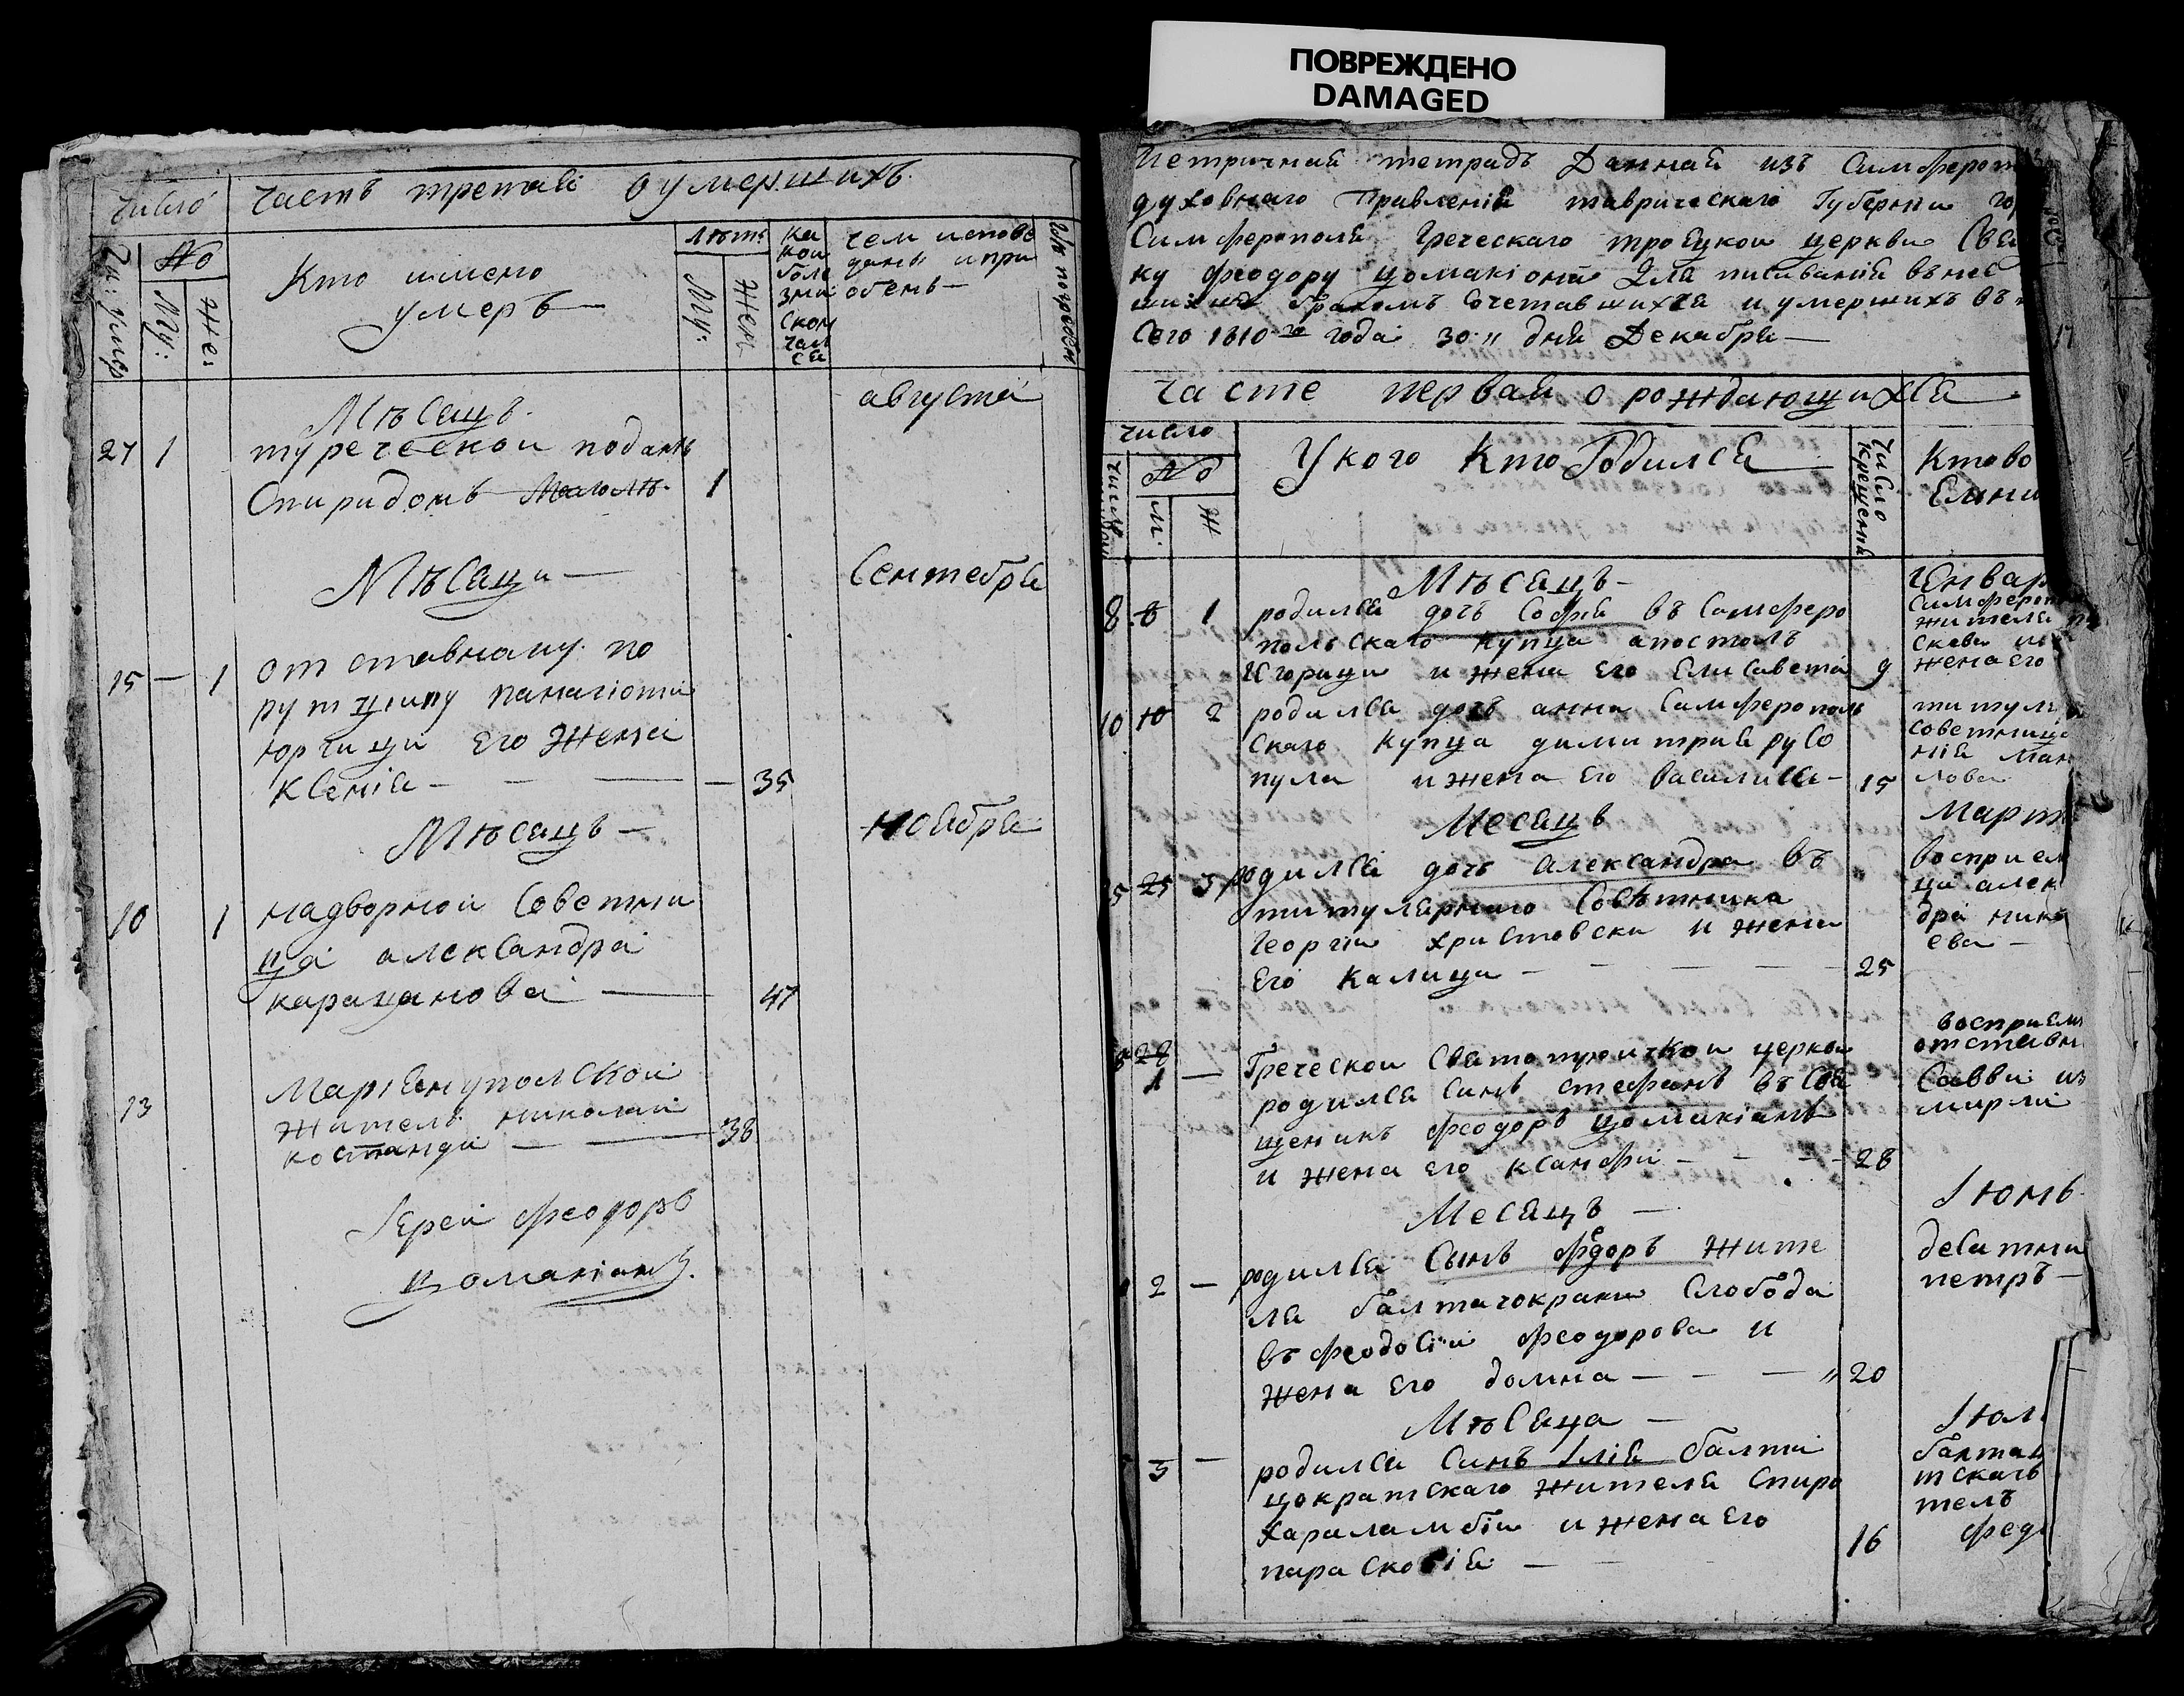 ПОВРЕЖДЕНО
DAMAGED
число
часть третаѣ о умершихъ
Чи: умер
№
Му:
Же:
Кто имено
умеръ —
лѣтъ
Му:
Жен
ка
кои
боле
зни
скон
чал
ся
чем испове
даны и при
общенъ —
Мѣсецъ
августа
27 1 туреческои подан
Спиридонъ 1
Мѣсецъ —
Сентебря
15 — 1 отставному по
рутщику панагіоти
юрчици его жена
Ксенія — — 35
Мѣсецъ —
Ноабря
10 1 надворной Советни
ца александра
карацанова — 47
13 Маріенупольской
житель николай
костанди — 38
Іереи феодоръ
цоманіанъ
Метричная тетрадъ Данная изъ Симфероп
духовнаго Правленія таврическаго Губерни го
Симферополя Греческаго троецкои церкви Свя
ку феодору цомакіона Для писиваній внес
браком Сочетавшихся и умершихъ въ
Сего 1810го года 30" дня Декабря —
Часте первая о рождающихся —
число
№
м.
ж
У кого кто Родился
Число
крещения
Кто во
Мѣсецъ —
Генвар
8 8 1 родилсе дочъ Софія въ Симферо
польскаго купца апостолъ
Кгорици и жена его Елисавета 9
Симфероп
жителя
жена его
10 10 2 родилса дочъ анна Симферополь
скаго купца димитрия русо
пула и жена его василиса — 15
титуля
советница
нія Ман
лова
Месецъ
Март
25 3 родилса дочъ александра въ
титулярнаго Совѣтника
Георгия христовски и жена
Его калица — 25
восприем
ца алек
дра нико
ева —
28
1 — Греческои Святотроичкои церкви
родилсе Синъ стефанъ въ Све
щеникъ феодоръ цомакіанъ
и жена его ксанфи — 28
восприем
отставн
Савви из
мирли
Месецъ —
Іюнь
2 — родилсе Сынъ фдоръ жите
ля балтачокраки Слобода
въ феодосіи феодорова и
жена его домна — " 20
десатни
петръ —
Мѣсеца —
Іюл
3 — родилсе Синъ Іліа балта
цократскаго жителя Спиро
хараламбіи и жена его
парасковіа — 16
балтац
тскагъ
телъ
федо